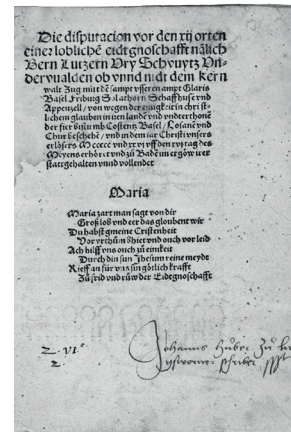 Die disputacion vor den xij orten
einer loblichē eidtgnoschafft nālich
Bern Lutzern Vry Schvuytz Vn-
dervualden ob vnnd nidt dem Kern
walt Zug mitt dē sampt vsseren ampt Glaris
Basel Friburg Solathorn Schaffhusē vnd
Appenzell / von wegen der einigkeit in christ-
lichem glauben in iren landē vnd vnderthonē
der fier bistūmb Costentz Basel / Losanē vnd
Chur beschehē / vnd in dem iar Christi vnsers
erlösers
Meyens erhöret vnd zů Baden im ergöw irer
statt gehalten vnnd vollendet
Maria
Maria zart man sagt von dir
Groß lob vnd eer das gloubent wir
Du habst gmeine Cristenheit
Vor yrthūm bhiet vnd ouch vor leid
Ach hilff vns ouch zů einikeit
Durch din sun Jhesum reine meydt
Rieff an für vns sin götlich krafft
Zů frid vnd růw der Eidtgnoschafft
Johanns Hůber Zů
schriber